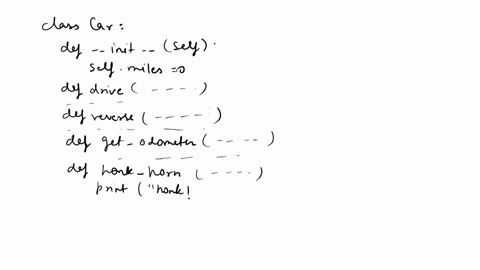 class Car:
def __init__(self):
self.miles = 0
def drive (----)
def reverse (-----)
def get_odometer (-- --)
def honk_horn (----)
print ("honk!